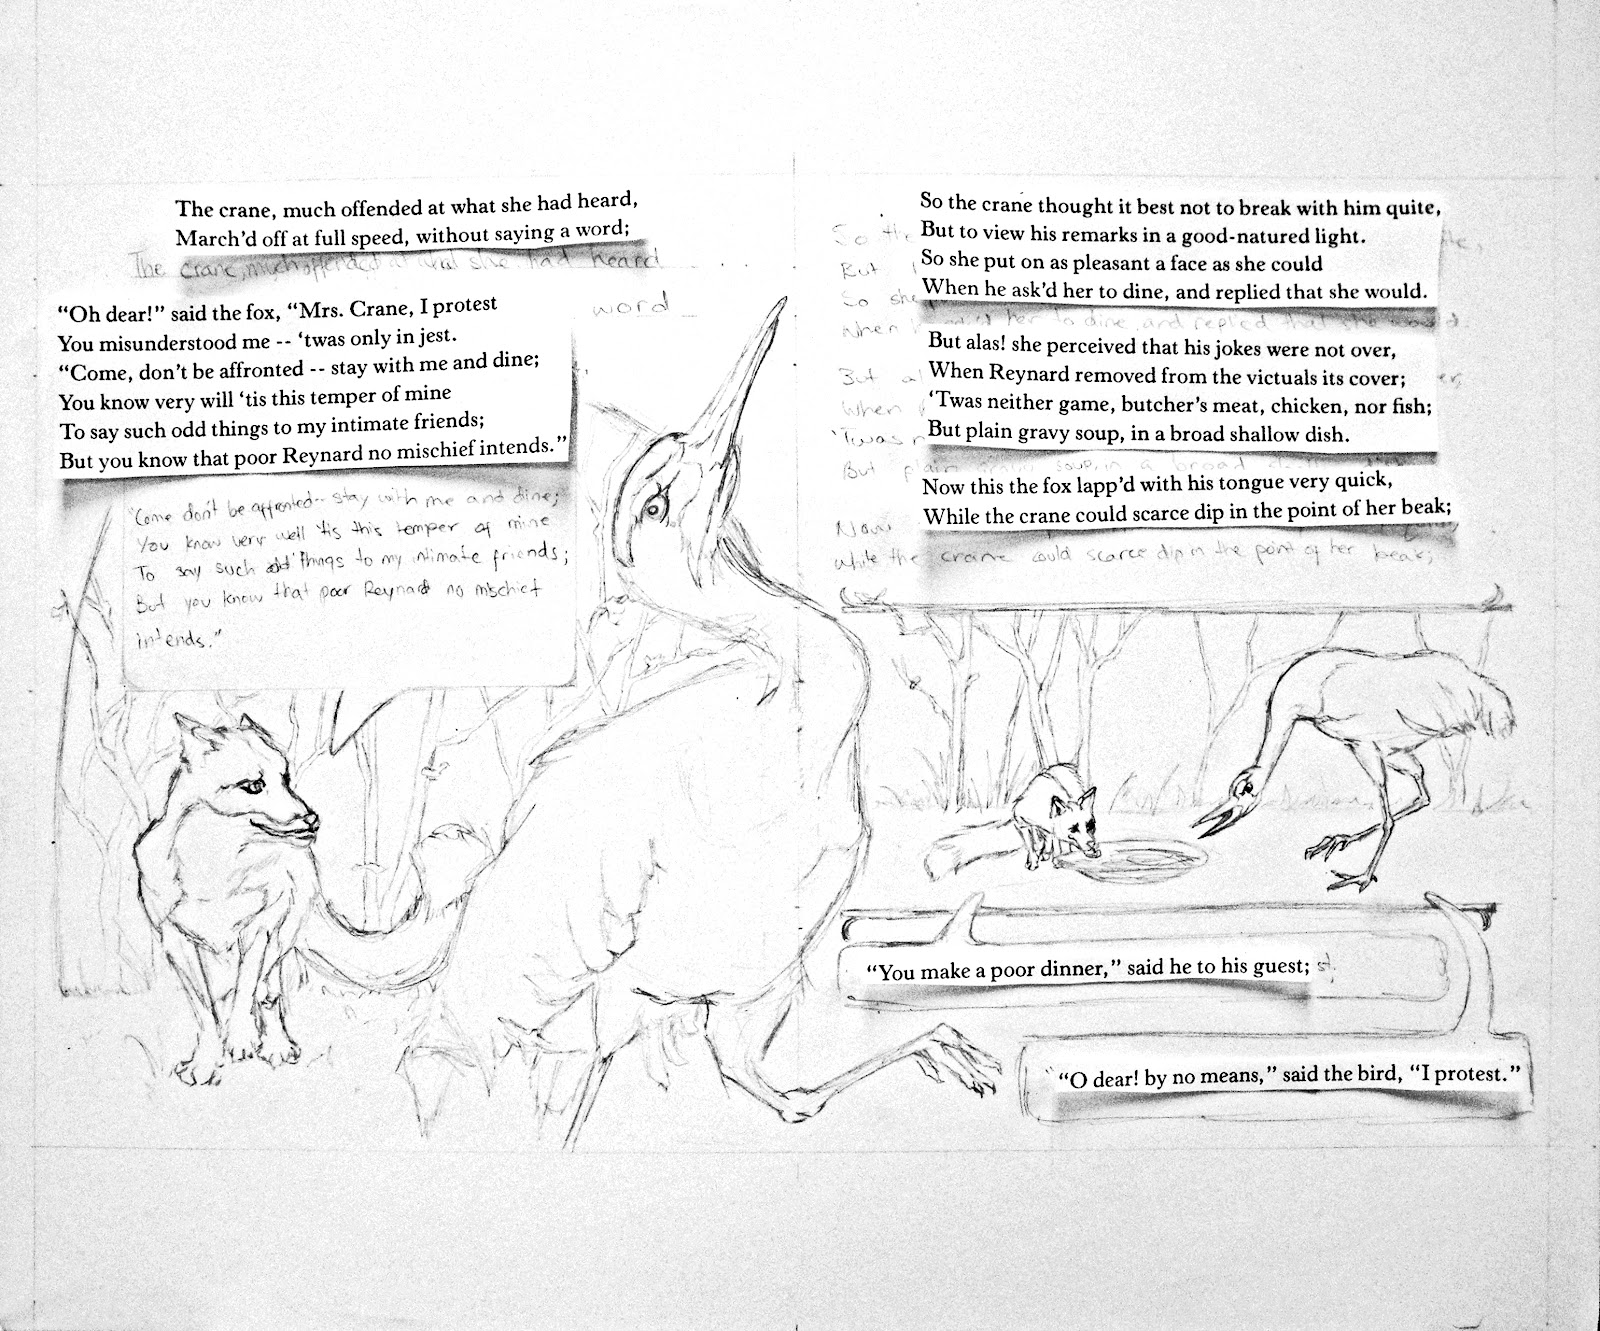 The crane, much offended at what she had heard,
March'd off at full speed, without saying a word;
The crane, much offended at what she had heard
word
“Oh dear!” said the fox, “Mrs. Crane, I protest
You misunderstood me -- ‘twas only in jest.
“Come, don’t be affronted -- stay with me and dine;
You know very will ‘tis this temper of mine
To say such odd things to my intimate friends;
But you know that poor Reynard no mischief intends.”
"Come don't be affronted-- stay with me and dine;
You know very well 'tis this temper of mine
To say such odd things to my intimate friends;
But you know that poor Reynard no mischief
intends."
So the crane thought it best not to break with him quite,
But to view his remarks in a good-natured light.
So she put on as pleasant a face as she could
When he ask’d her to dine, and replied that she would.
So the
But
So she
When her to dine, and replied that she would.
But alas! she perceived that his jokes were not over,
When Reynard removed from the victuals its cover;
‘Twas neither game, butcher’s meat, chicken, nor fish;
But plain gravy soup, in a broad shallow dish.
But
When
'Twas
But plain soup, in a broad
Now this the fox lapp’d with his tongue very quick,
While the crane could scarce dip in the point of her beak;
Now
While the crane could scarce dip in the point of her beak;
“You make a poor dinner,” said he to his guest; st.
“O dear! by no means,” said the bird, “I protest.”